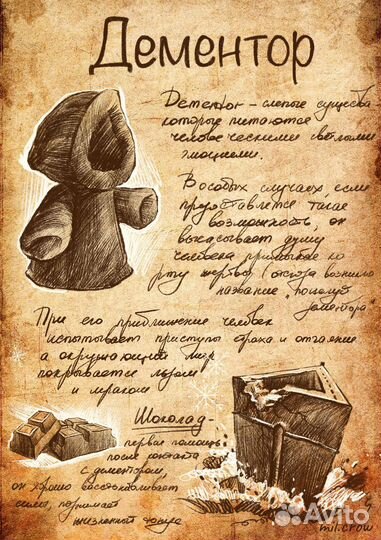 Дементор
Dementor - слепые существа
которые питаются
человеческими светлыми
эмоциями.
В особых случаях если
предоставляется такая
возможность, он
высасывает душу
человека
рту жертвы (отсюда возникло
название "поцелуй
дементора"
При его приближение человек
испытывает приступы страха и отчаяния
а окружающий мир
покрывается льдом
и мраком
Шоколад -
первая помощь
после контакта
с дементором,
он хорошо восстанавливает
силы, поднимает
жизненный тонус
mil.crow
Avito